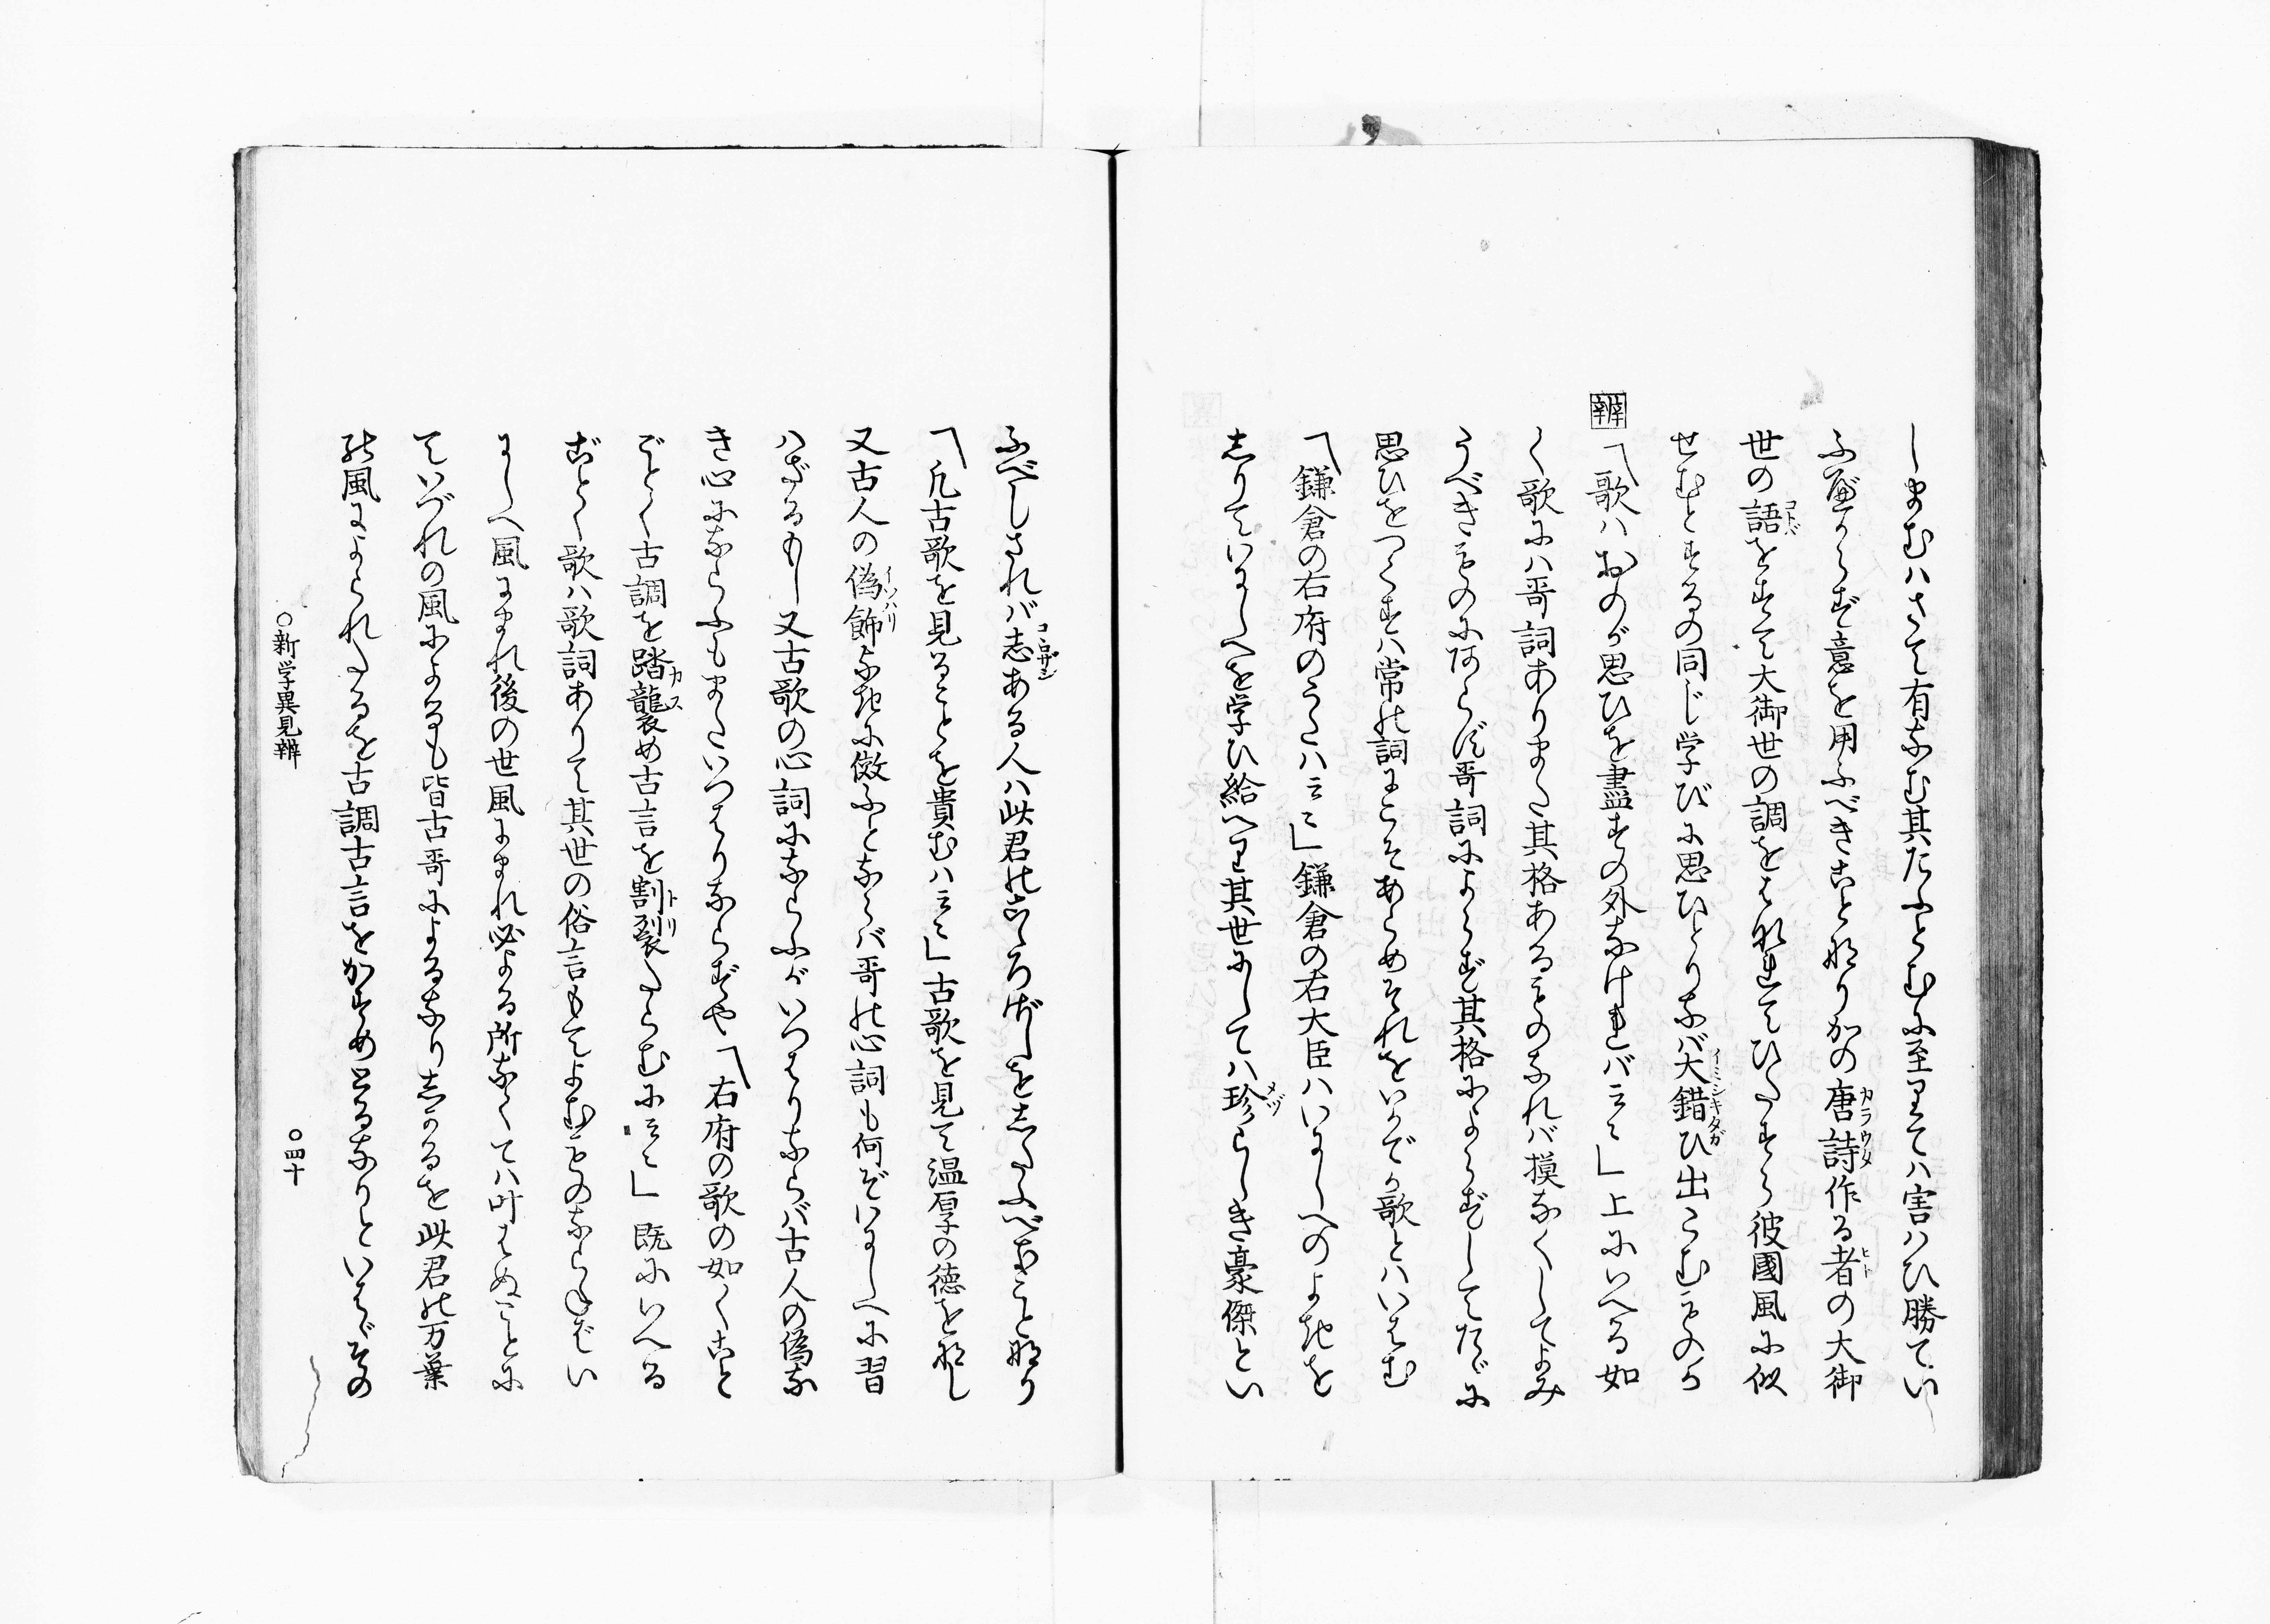 しまむハさて有なむ其たふとむに至りてハ害ハひ勝てい
ふべからず意を用ふべきこと也かの唐詩作る者の大御
世の語をすてて大御世の調をはなれてひたすら彼國風に似
せむとするの同じ学びに思ひとりなバ大錯ひ出こむものか
辨「歌ハおのが思ひを盡すの外なけれバ云々」上にいへる如
く歌にハ哥詞ありまた其格あるものなれバ摸なくしてよみ
うべきものにあらず哥詞によらず其格によらずしてたゞに
思ひをつくすハ常の詞にこそあらめそれをいかでか歌とハいはむ
「鎌倉の右府のうたハ云々」鎌倉の右大臣ハいにしへのよきを
しりていにしへを学ひ給へり其世にしてハ珍らしき豪傑とい
ふべしされバ志ある人ハ此君のこゝろばしをしたふべきこと也
「凡古歌を見ることを貴むハ云々」古歌を見て温厚の徳を也し
又古人の偽飾なきに倣ふとならバ哥の心詞も何ぞいにしへに習
ハざるもし又古歌の心詞にならふがいつはりならバ古人の偽な
き心にならふもまたいつはりならずや「右府の歌の如くこと
ごとく古調を踏襲め古言を割裂たらむに云々」既にいへる
ごとく歌ハ歌詞ありて其世の俗言もてよむものならねばい
にしへ風にまれ後の世風にまれ必よる所なくてハ叶はぬことに
ていづれの風によるも皆古哥によるなりしかるを此君の万葉
の風によられたるを古調古言をかすめとるなりといはゞその
○新学異見辨
○四十